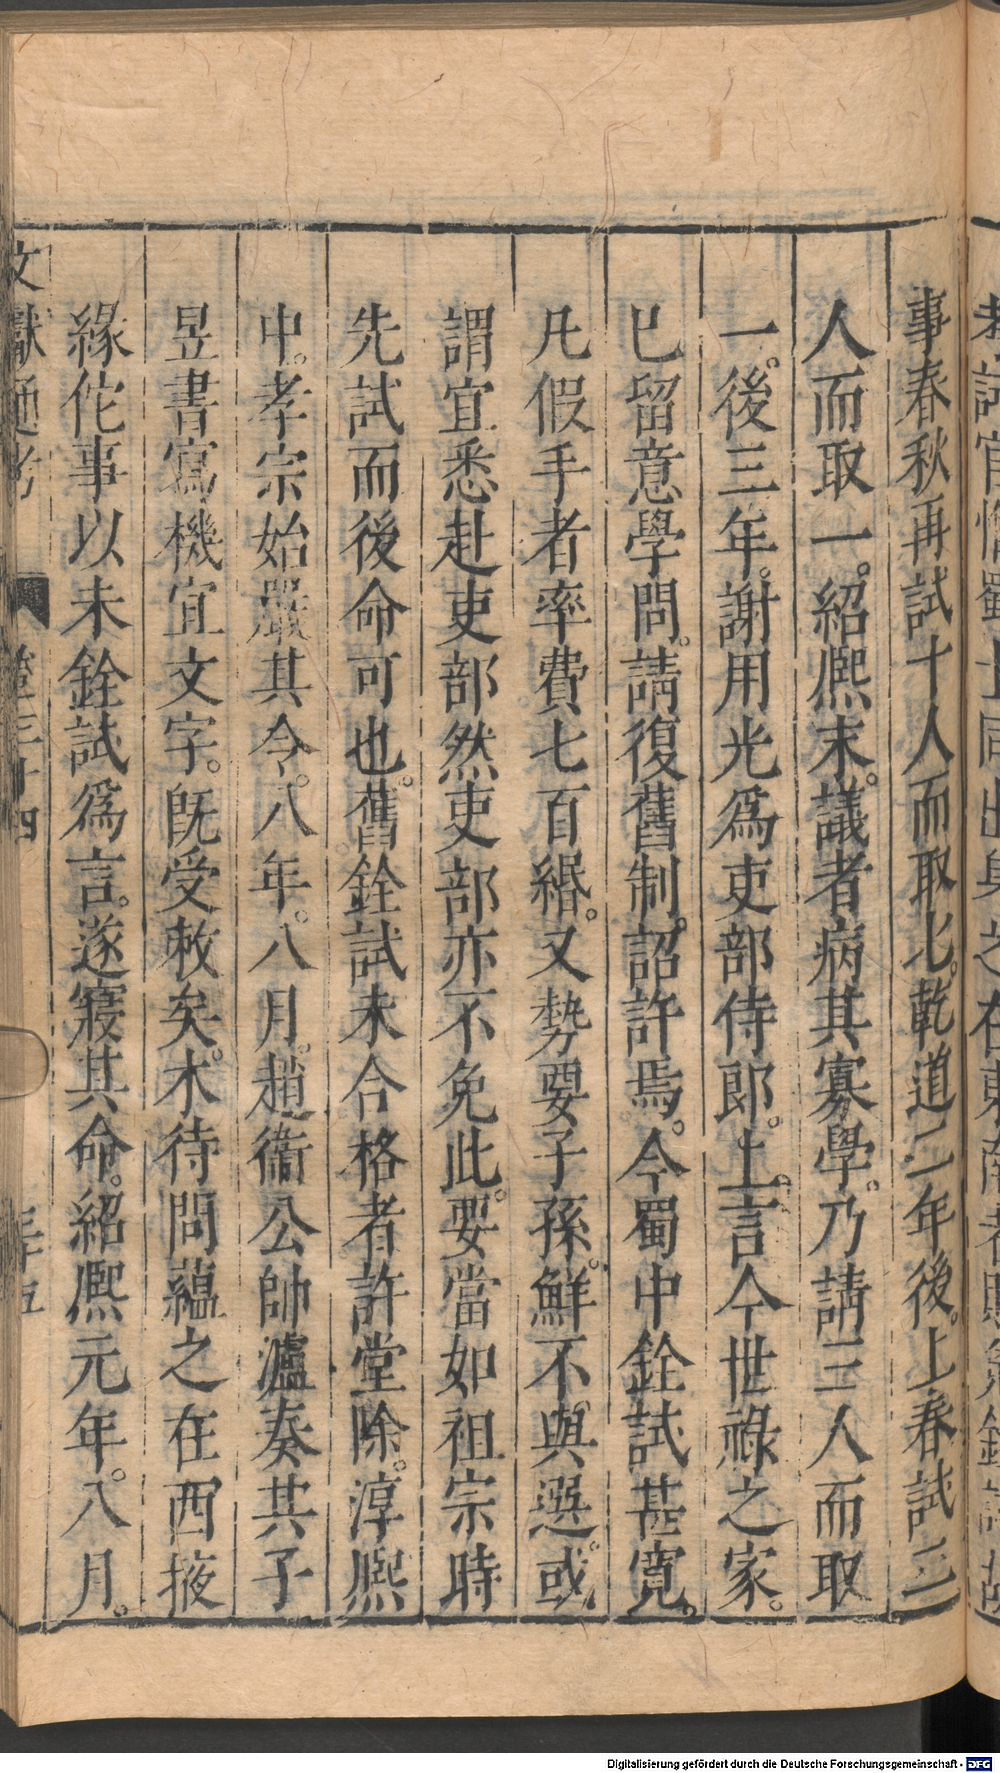 事春秋再試十人而取七。乾道二年後。上春試三
人而取一。紹熈末。議者病其寡學。乃請三人而取
一。後三年。謝用光爲吏部侍郎。上言今世祿之家。
已留意學問。請復舊制。詔許焉。今蜀中銓試甚寬。
凡假手者率費七百緡。又勢要子孫。鮮不與選。或
謂宜悉赴吏部然吏部亦不免此。要當如祖宗時
先試而後命可也。舊銓試未合格者許堂除。淳熈
中。孝宗始嚴其令。八年。八月。趙衞公帥瀘奏其子
昱書寫機宜文字。旣受敕矣。木待問蘊之在西掖
緣佗事以未銓試爲言。遂寢其命。紹熈元年。八月。
文獻通考 卷三十四 三十五
Digitalisierung gefördert durch die Deutsche Forschungsgemeinschaft - DFG